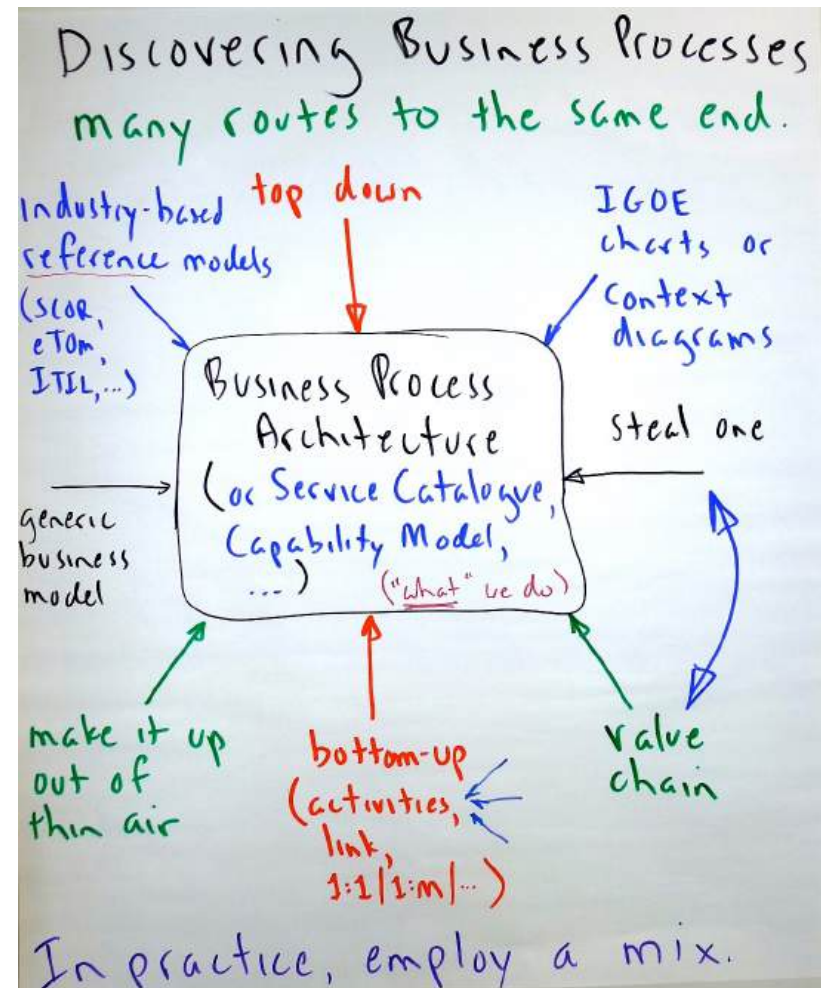 Discovering Business Processes
many routes to the same end.
Industry-based
reference models
(SCOR,
eTOM,
ITIL,...)
top down
IGOE
charts or
context
diagrams
Business Process
Architecture
(or Service Catalogue,
Capability Model,
...)
("what" we do)
steal one
generic
business
model
make it up
out of
thin air
bottom-up
(activities,
link,
1:1|1:m|...)
value
chain
In practice, employ a mix.